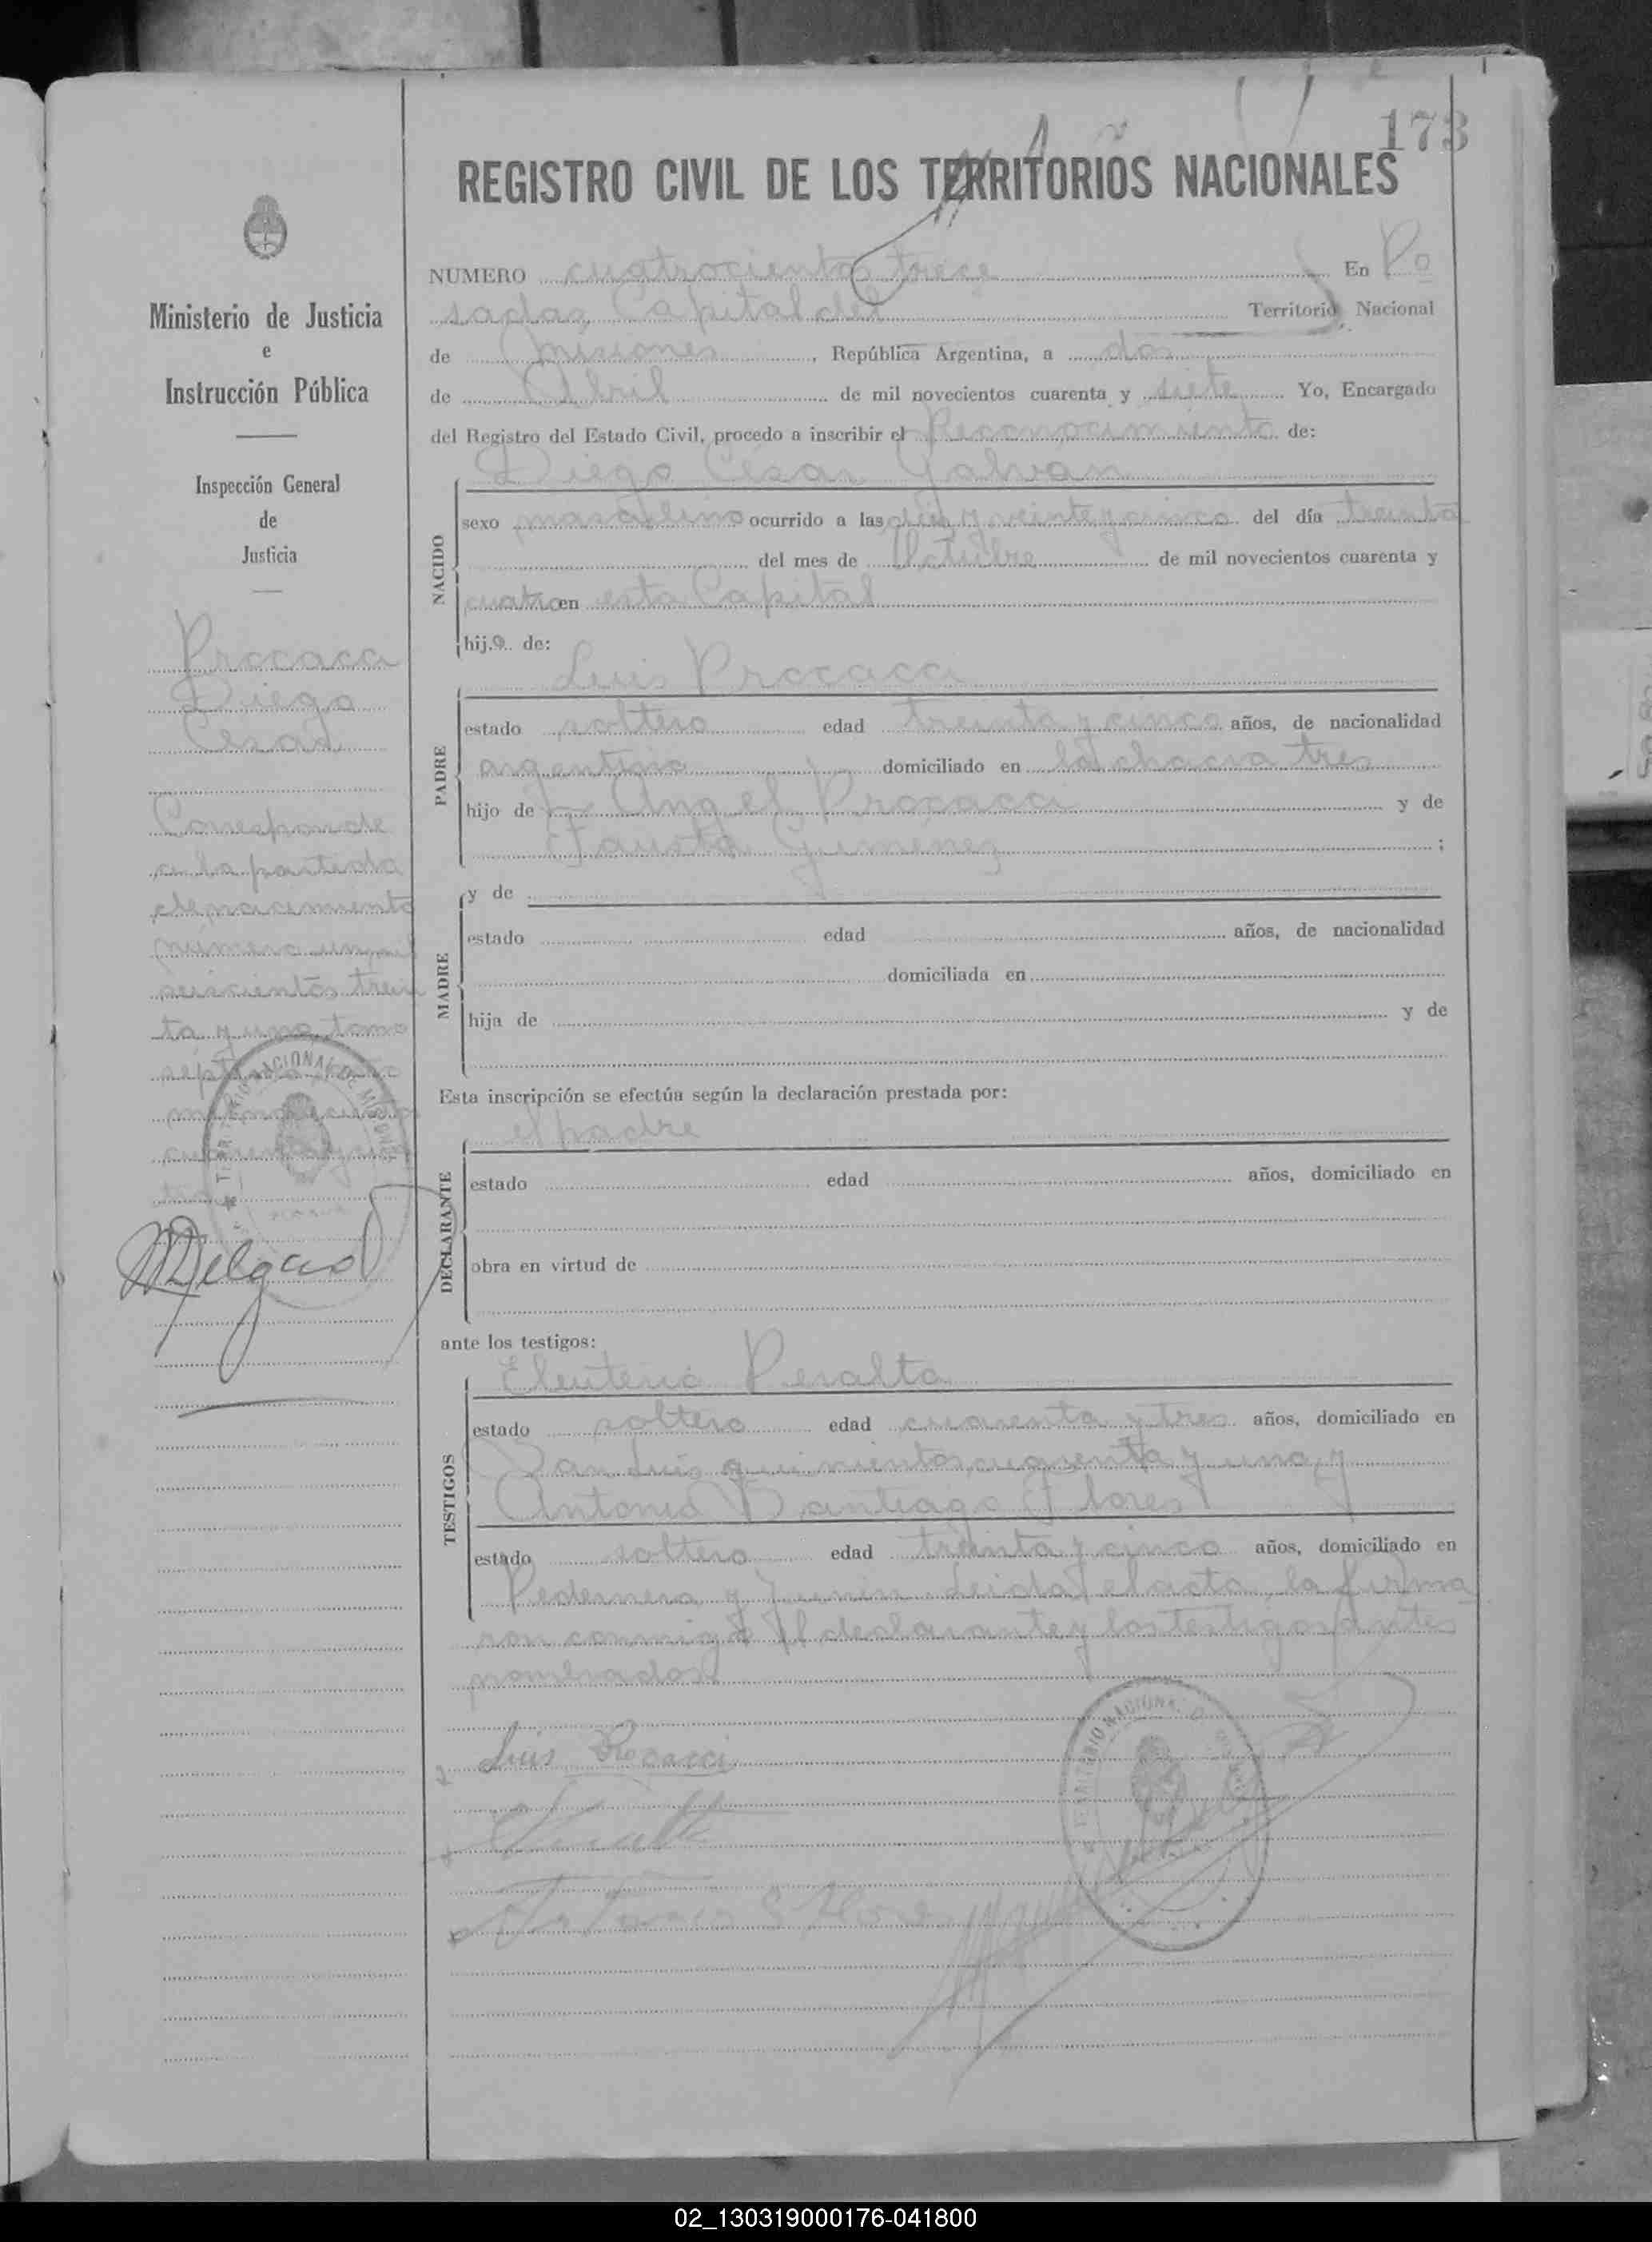 173
REGISTRO CIVIL DE LOS TERRITORIOS NACIONALES
Ministerio de Justicia
e
Instrucción Pública
Inspección General
de
Justicia
Procacci
Diego
Cesar
Corresponde
a la partida
de nacimiento
número un mil
seiscientos trein
ta y uno, tomo
Delgado
NUMERO cuatrocientos trece En Po
sadas, Capital del Territorio Nacional
de Misiones, República Argentina, a dos
de Abril de mil novecientos cuarenta y siete Yo, Encargado
del Registro del Estado Civil, procedo a inscribir el Reconocimiento de:
Diego César Galván
NACIDO
sexo masculino ocurrido a las diez y veinte y cinco del día treinta
del mes de Octubre de mil novecientos cuarenta y
cuatro en esta Capital
hijo de:
Luis Procacci
PADRE
estado soltero edad treinta y cinco años, de nacionalidad
argentina domiciliado en lote chacra tres
hijo de Angel Procacci y de
Fausta Giménez ;
y de
MADRE
estado edad años, de nacionalidad
domiciliada en
hija de y de
Esta inscripción se efectúa según la declaración prestada por:
el padre
DECLARANTE
estado edad años, domiciliado en
obra en virtud de
ante los testigos:
Eleuterio Peralta
TESTIGOS
estado soltero edad cuarenta y tres años, domiciliado en
San Luis quinientos cuarenta y uno, y
Antonio Santiago Flores
estado soltero edad treinta y cinco años, domiciliado en
Pedernera y Junín. Leida el acta, la firma
ron conmigo el declarante y los testigos antes
nombrados.
Luis Procacci
02_130319000176-041800